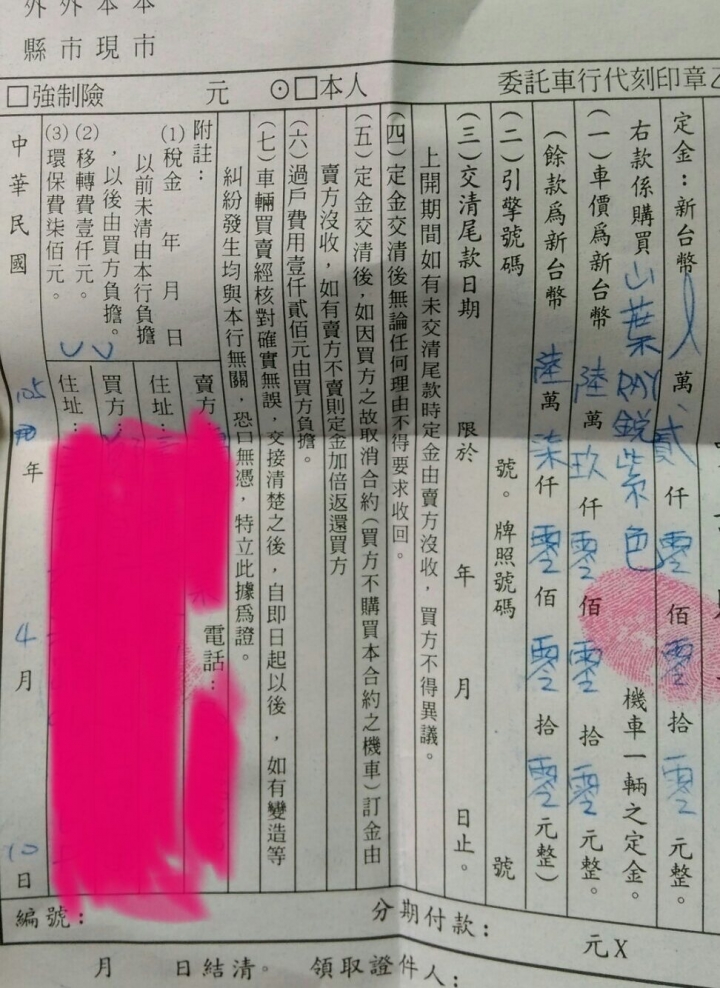 外外本本
縣市現市
□強制險 元 ⊙□本人 委託車行代刻印章乙
定金：新台幣 萬貳仟零佰零拾零元整。
右款係購買山葉RAY銳紫色機車一輛之定金。
(一)車價為新台幣陸萬玖仟零佰零拾零元整。
(餘款為新台幣陸萬柒仟零佰零拾零元整)
(二)引擎號碼 號。牌照號碼 號
(三)交清尾款日期 限於 年 月 日止。
上開期間如有未交清尾款時定金由賣方沒收，買方不得異議。
(四)定金交清後無論任何理由不得要求收回。
(五)定金交清後，如因買方之故取消合約(買方不購買本合約之機車)訂金由
賣方沒收，如有賣方不賣則定金加倍返還買方
(六)過戶費用壹仟貳佰元由買方負擔。
(七)車輛買賣經核對確實無誤，交接清楚之後，自即日起以後，如有變造等
糾紛發生均與本行無關，恐口無憑，特立此據為證。
附註：
(1)稅金 年 月 日
以前未清由本行負擔
，以後由買方負擔。
(2)移轉費壹仟元。
(3)環保費柒佰元。
賣方：
電話：
住址：
買方：
住址：
中華民國 105 年 4 月 10 日
編號： 分期付款： 元X
月 日結清。 領取證件人：